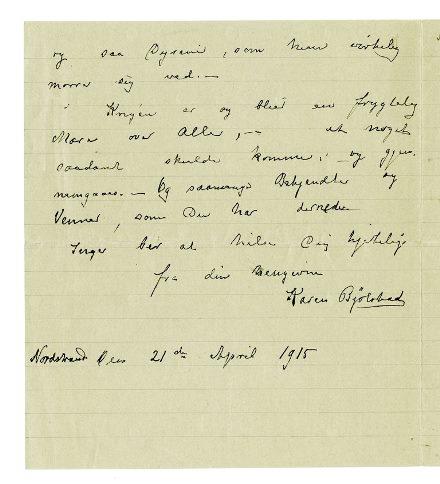 og saa Dyrene, som kan virkelig
more sig ved. —
Krigen er og blir en frygtelig
Mare over Alle, — at noget
saadant skulde komme; — og gjen-
nemgaaes. — Og saamange Bekjendte og
Venner, som Du har dernede
Inger ber at hilse Dig hjertelig
fra din hengivne
Karen Bjölstad
Nordstrand den 21de April 1915